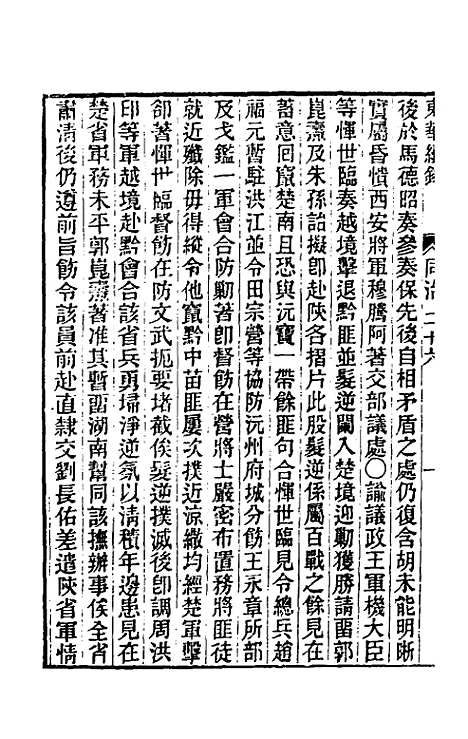 東華續錄　同治二十六　一
後於馬德昭奏參奏保先後自相矛盾之處仍復含胡未能明晰
實屬昏憒西安將軍穆騰阿著交部議處〇諭議政王軍機大臣
等惲世臨奏越境擊退黔匪並髮逆闌入楚境迎勦獲勝請畱郭
崑燾及朱孫詒擬卽赴陝各摺片此股髮逆係屬百戰之餘見在
蓄意回竄楚南且恐與沅寶一帶餘匪句合惲世臨見令總兵趙
福元暫駐洪江並令田宗營等協防沅州府城分飭王永章所部
及戈鑑一軍會合防勦著卽督飭在營將士嚴密布置務將匪徒
就近殲除毋得縱令他竄黔中苗匪屢次撲近涼繳均經楚軍擊
卻著惲世臨督飭在防文武扼要堵截俟髮逆撲滅後卽調周洪
印等軍越境赴黔會合該省兵勇埽淨逆氛以清積年邊患見在
楚省軍務未平郭崑燾著准其暫畱湖南幫同該撫辦事俟全省
肅清後仍遵前旨飭令該員前赴直隸交劉長佑差遣陝省軍情